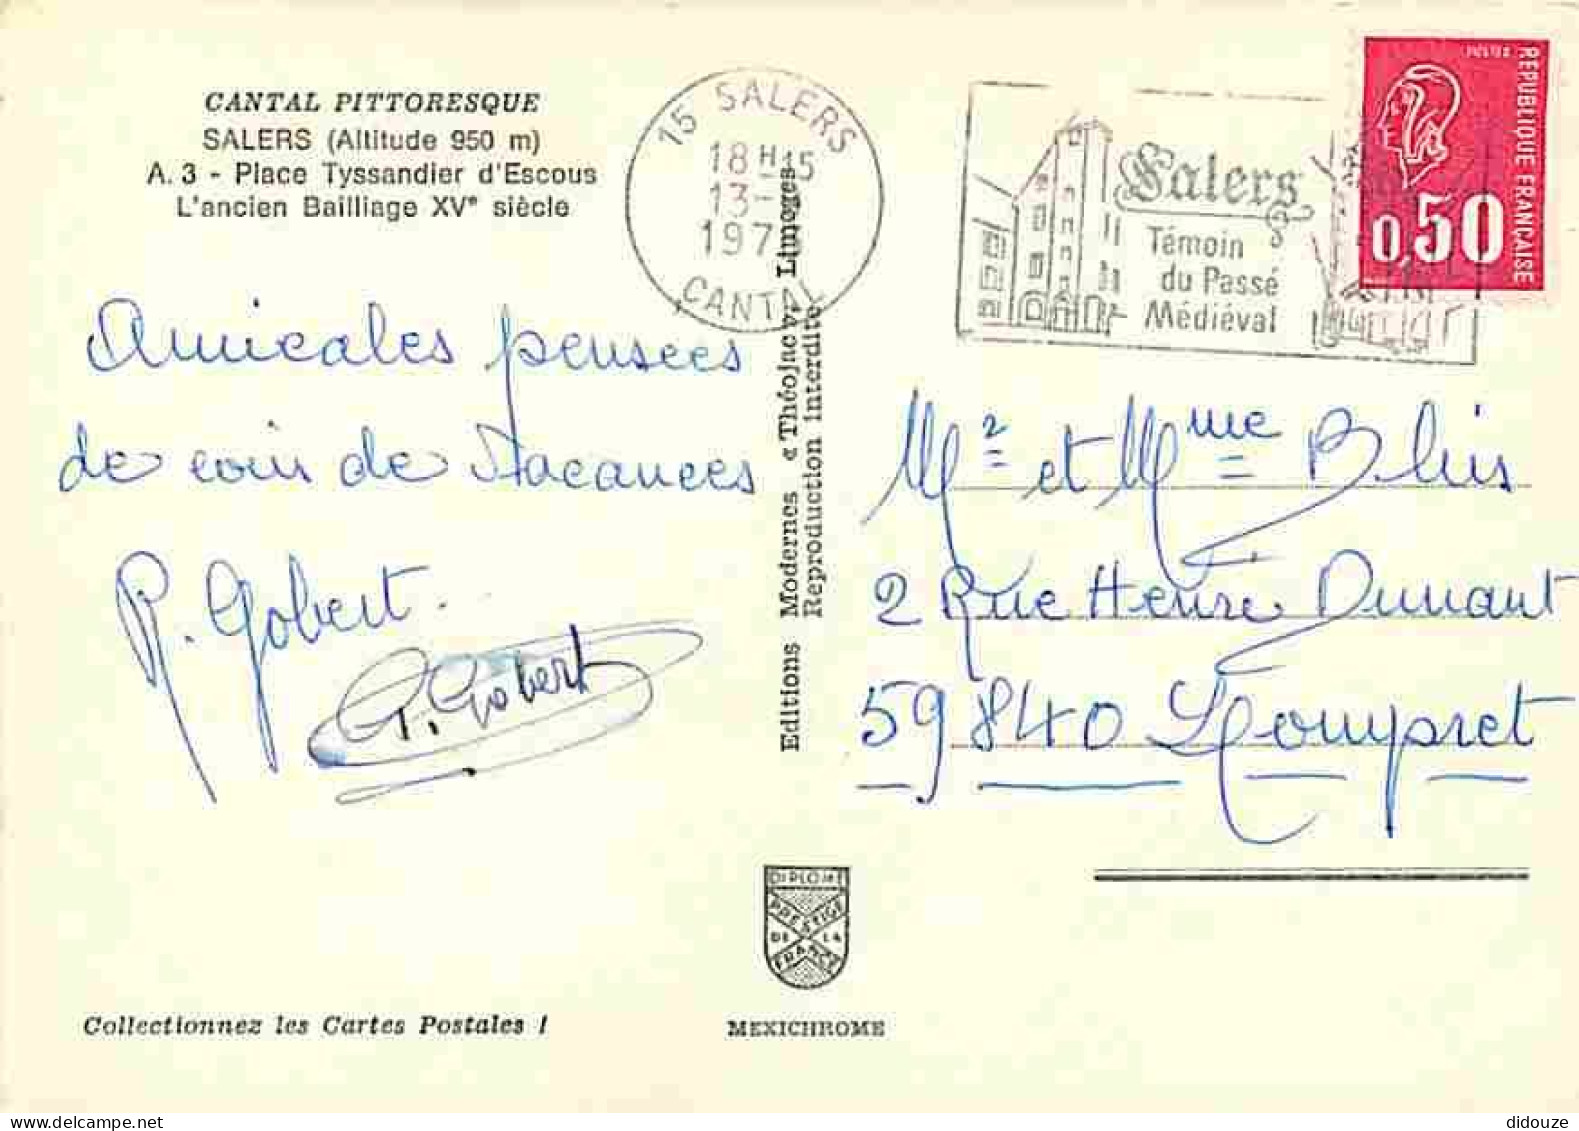 CANTAL PITTORESQUE
SALERS (Altitude 950 m)
A. 3 - Place Tyssandier d'Escous
L'ancien Bailliage XVe siècle
15 SALERS
18 H 15
13 -
197
CANTAL
Salers
Témoin
du Passé
Médiéval
POSTES
RÉPUBLIQUE FRANÇAISE
0,50
Amicales pensees
de coin de Vacances
R. Gobert.
G. Gobert
Editions Modernes « Théojac », Limoges
Reproduction interdite
Mr et Mme Blis
2 Rue Henri Dunant
59840 Lompret
DIPLOME
PRESTIGE
DE LA
FRANCE
Collectionnez les Cartes Postales !
MEXICHROME
didouze